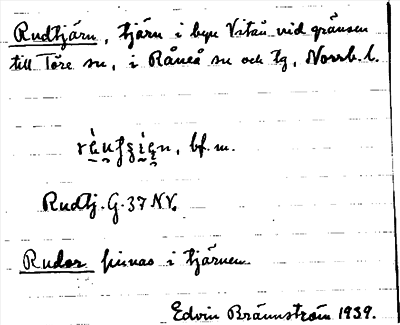 Rudtjärn, tjärn i byn Vitån vid gränsen
till Töre sn, i Råneå sn och tg, Norrb. l.
bf. m.
Rudtj. G. 37 NV.
Rudor finnas i tjärnen
Edvin Brännström 1939.